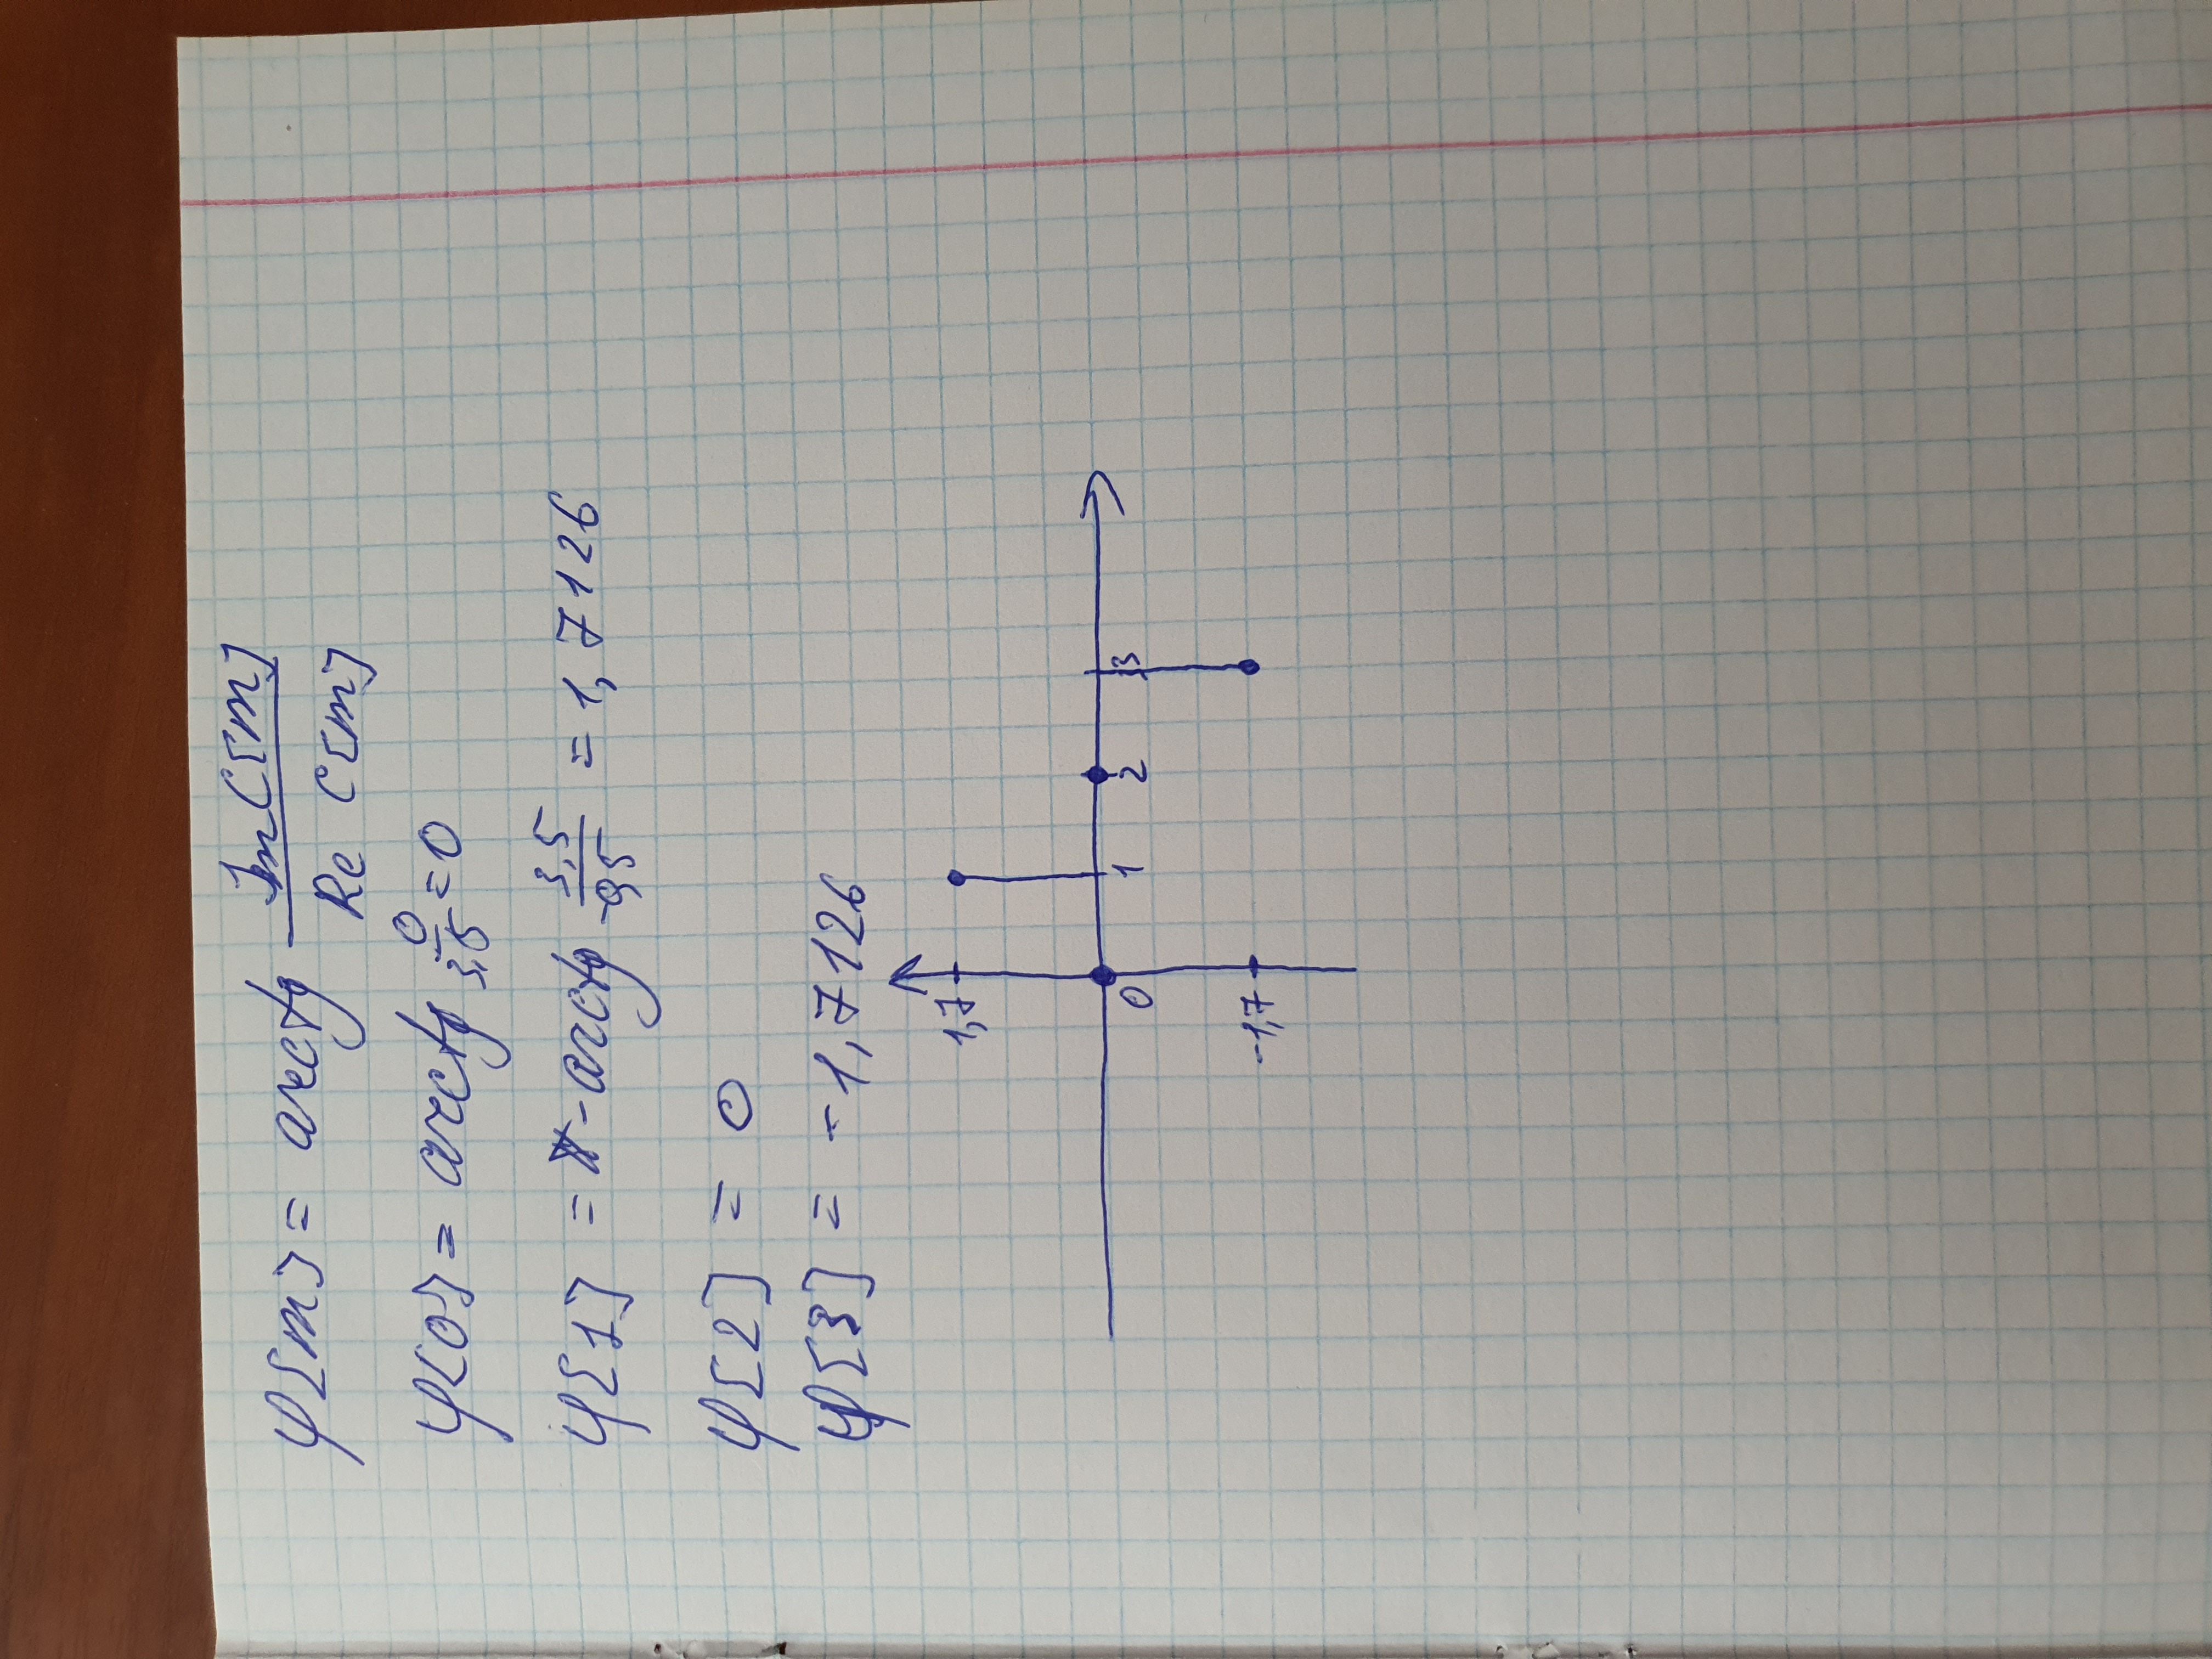 φ[m] = arctg Im C[m] / Re C[m]
φ[0] = arctg 0/3,5 = 0
φ[1] = π - arctg 3,5/-0,5 = 1,7126
φ[2] = 0
φ[3] = -1,7126
1,7
0 1 2 3
-1,7